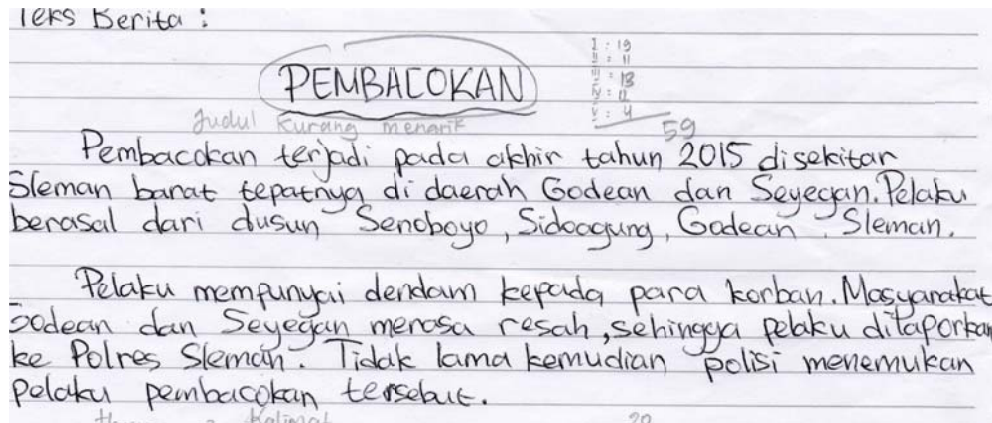 Teks Berita :
PEMBACOKAN
I : 19
II : 11
III : 13
IV : 12
V : 4
59
Judul kurang menarik
Pembacokan terjadi pada akhir tahun 2015 disekitar
Sleman barat tepatnya di daerah Godean dan Seyegan. Pelaku
berasal dari dusun Senoboyo, Sidoagung, Godean, Sleman.
Pelaku mempunyai dendam kepada para korban. Masyarakat
Godean dan Seyegan merasa resah, sehingga pelaku dilaporkan
ke Polres Sleman. Tidak lama kemudian polisi menemukan
pelaku pembacokan tersebut.
Kalimat